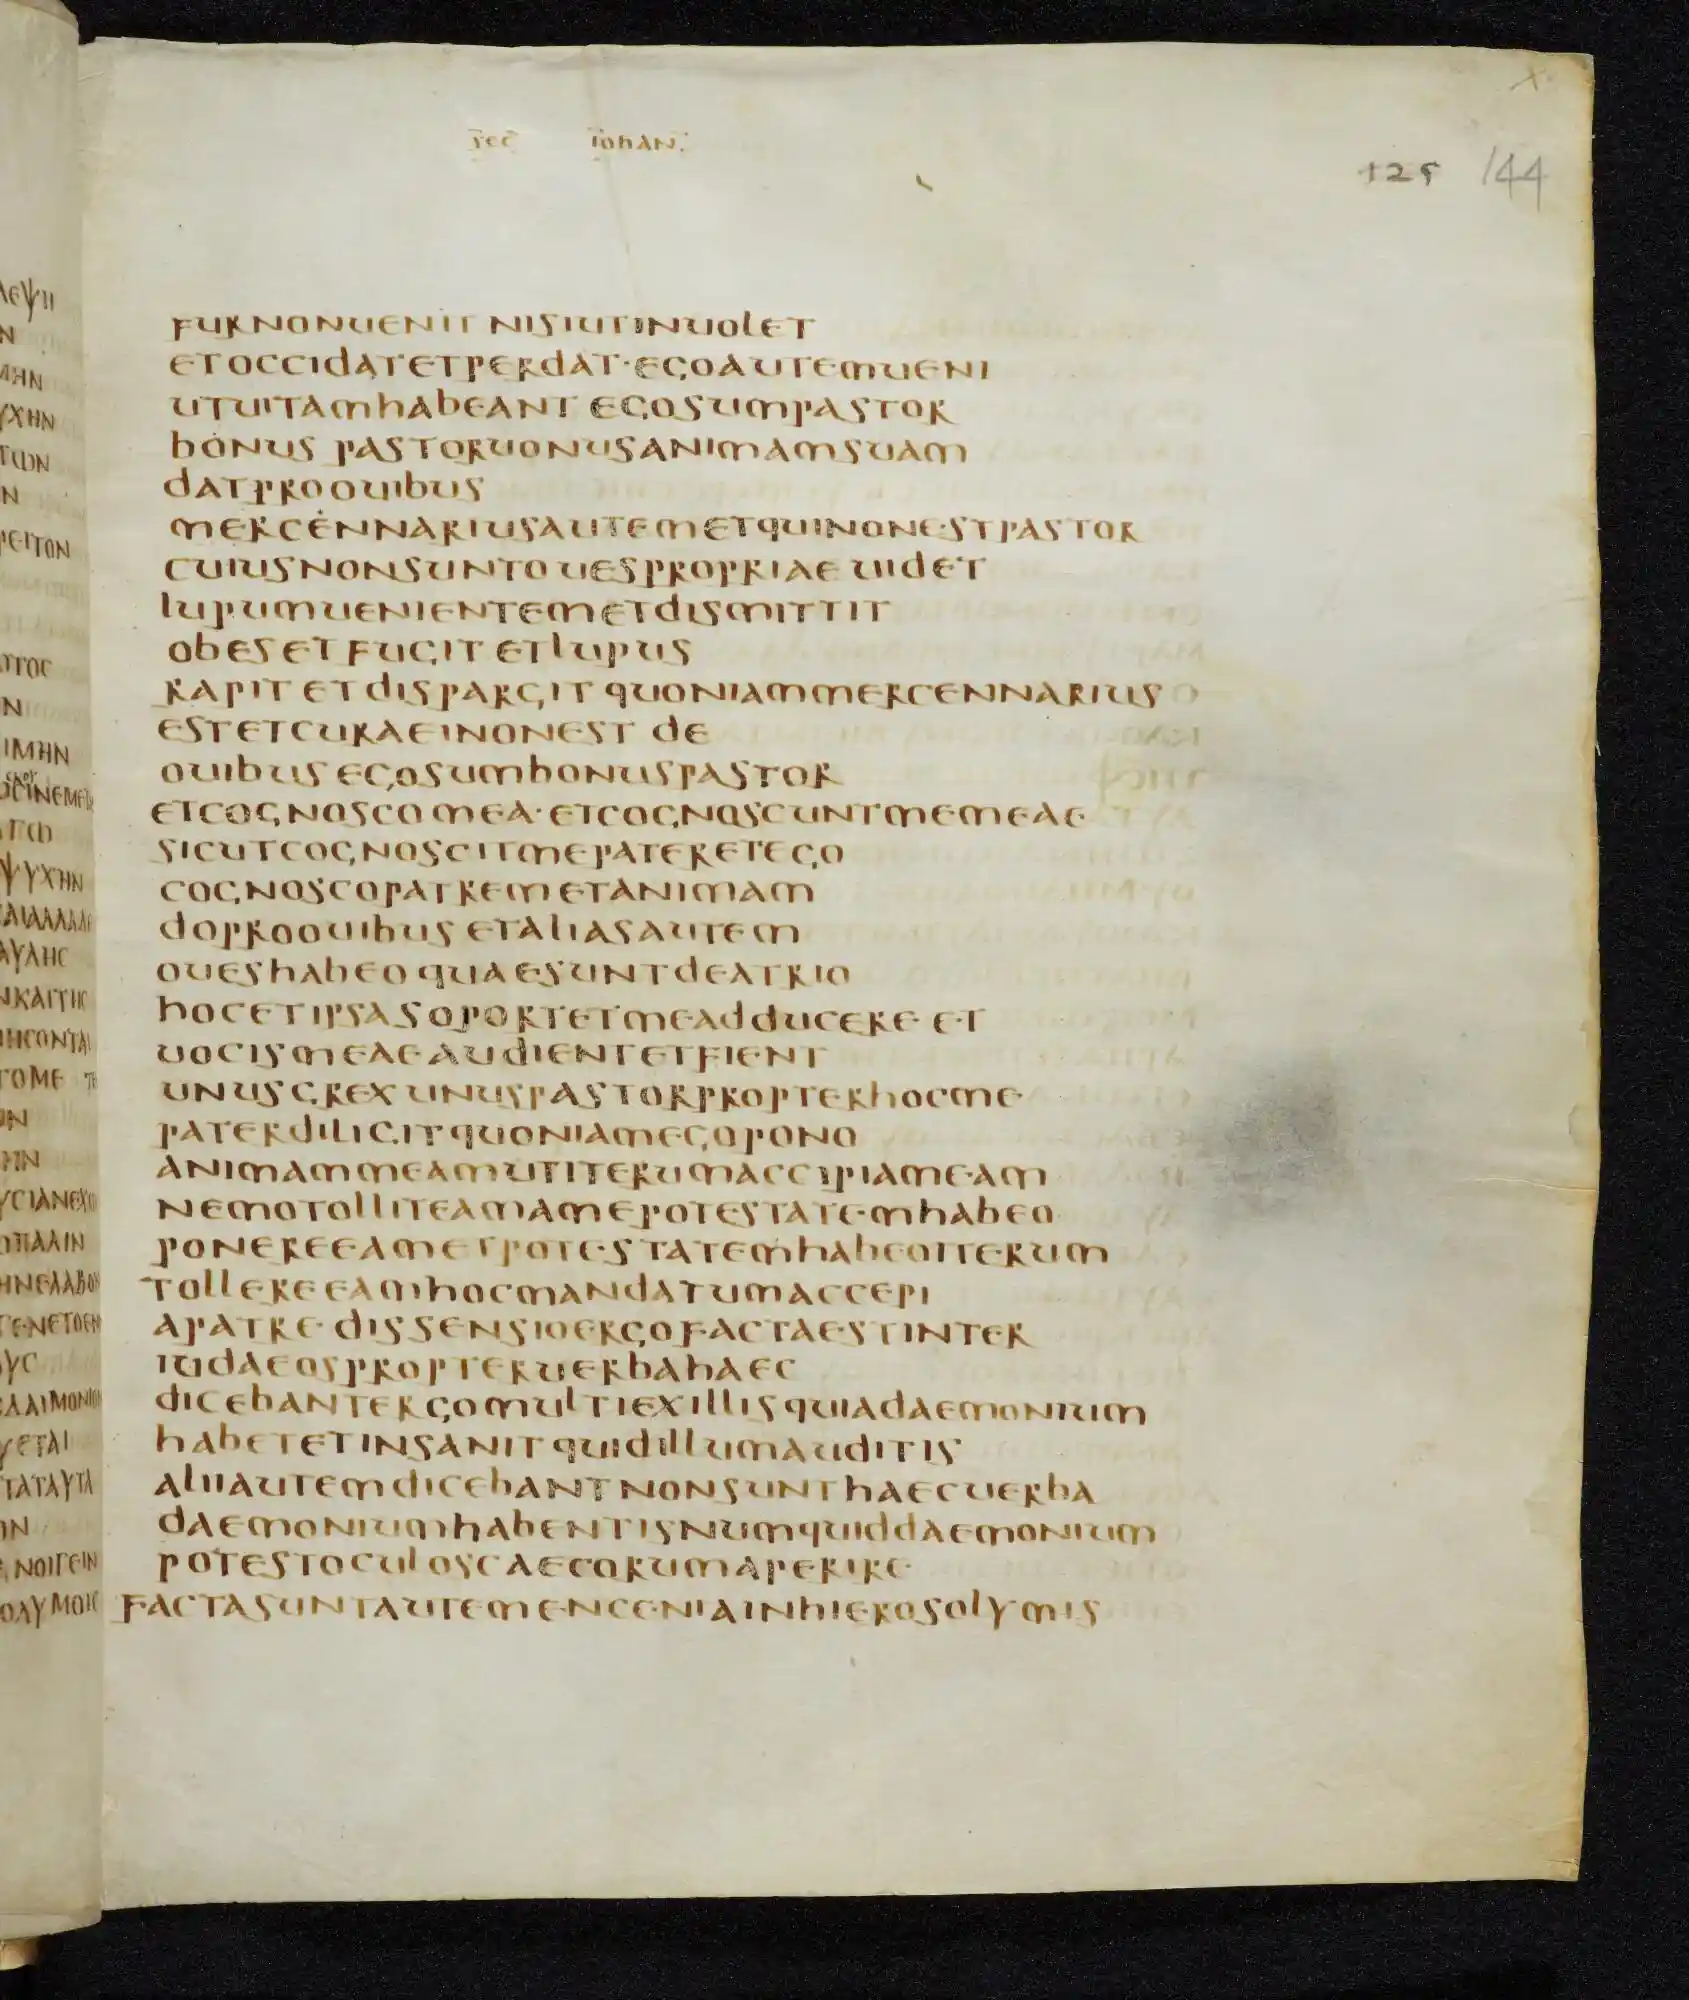 sec iohan
125 144
furnonuenit nisiutinuolet
etoccidatetperdat·egoautemueni
utuitamhabeant egosumpastor
bonus pastoruonusanimamsuam
datproouibus
mercennariusautemetquinonestpastor
cuiusnonsuntouespropriae uidet
lupumuenientemetdismittit
obesetfugit etlupus
rapit etdispargit quoniammercennarius
estetcuraeinonest de
ouibus egosumbonuspastor
etcognosco mea·etcognoscuntmemeae
sicutcognoscitmepateretego
cognoscopatremetanimam
doproouibus etaliasautem
oueshabeo quaesuntdeatrio
hocetipsasoportetmeadducere et
uocismeaeaudientetfient
unusgrex unuspastorpropterhocme
paterdiligitquoniamegopono
animammeamutiterumaccipiameam
nemotolliteamamepotestatemhabeo
ponereeametpotestatemhabeoiterum
tollereeamhocmandatumaccepi
apatre dissensioergofactaestinter
iudaeospropteruerbahaec
dicebantergomultiexillisquiadaemonium
habetetinsanitquidillumauditis
aliiautemdicebantnonsunthaecuerba
daemoniumhabentisnumquiddaemonium
potestoculoscaecorumaperire
factasuntautemenceniainhierosolymis